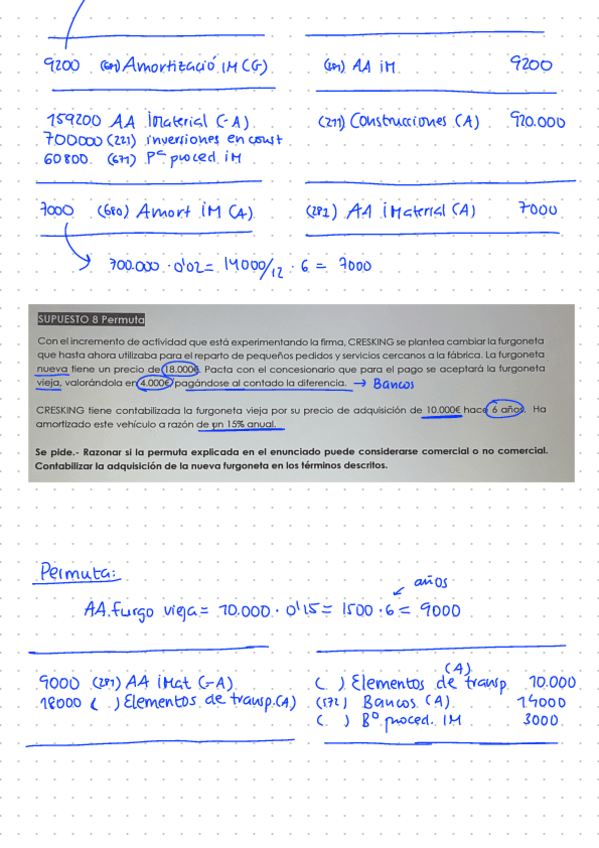 9200 (681) Amortizació IM (G) (281) AA IM 9200
159200 AA IMaterial (-A) (211) Construcciones (A) 920.000
700000 (221) inversiones en const
60800 (671) Pª proced. IM
7000 (680) Amort IM (A) (282) AA IMaterial (A) 7000
700.000 · 0'02 = 14000/12 · 6 = 7000
SUPUESTO 8 Permuta
Con el incremento de actividad que está experimentando la firma, CRESKING se plantea cambiar la furgoneta
que hasta ahora utilizaba para el reparto de pequeños pedidos y servicios cercanos a la fábrica. La furgoneta
nueva tiene un precio de 18.000€. Pacta con el concesionario que para el pago se aceptará la furgoneta
vieja, valorándola en 4.000€ pagándose al contado la diferencia. → Bancos
CRESKING tiene contabilizada la furgoneta vieja por su precio de adquisición de 10.000€ hace 6 años. Ha
amortizado este vehículo a razón de un 15% anual.
Se pide.- Razonar si la permuta explicada en el enunciado puede considerarse comercial o no comercial.
Contabilizar la adquisición de la nueva furgoneta en los términos descritos.
Permuta:
años
AA. furgo vieja = 10.000 · 0'15 = 1500 · 6 = 9000
(A)
9000 (281) AA IMat (-A) ( ) Elementos de transp. 10.000
18000 ( ) Elementos de transp. (A) (572) Bancos (A) 14000
( ) Bº proced. IM 3000